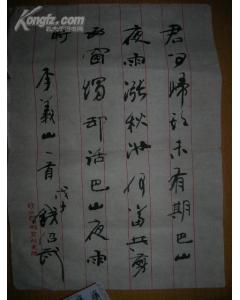 君问归期未有期巴山
夜雨涨秋池何当共剪
西窗烛却话巴山夜雨
时
李义山一首
戊申
钱绍武
Kongfz.com